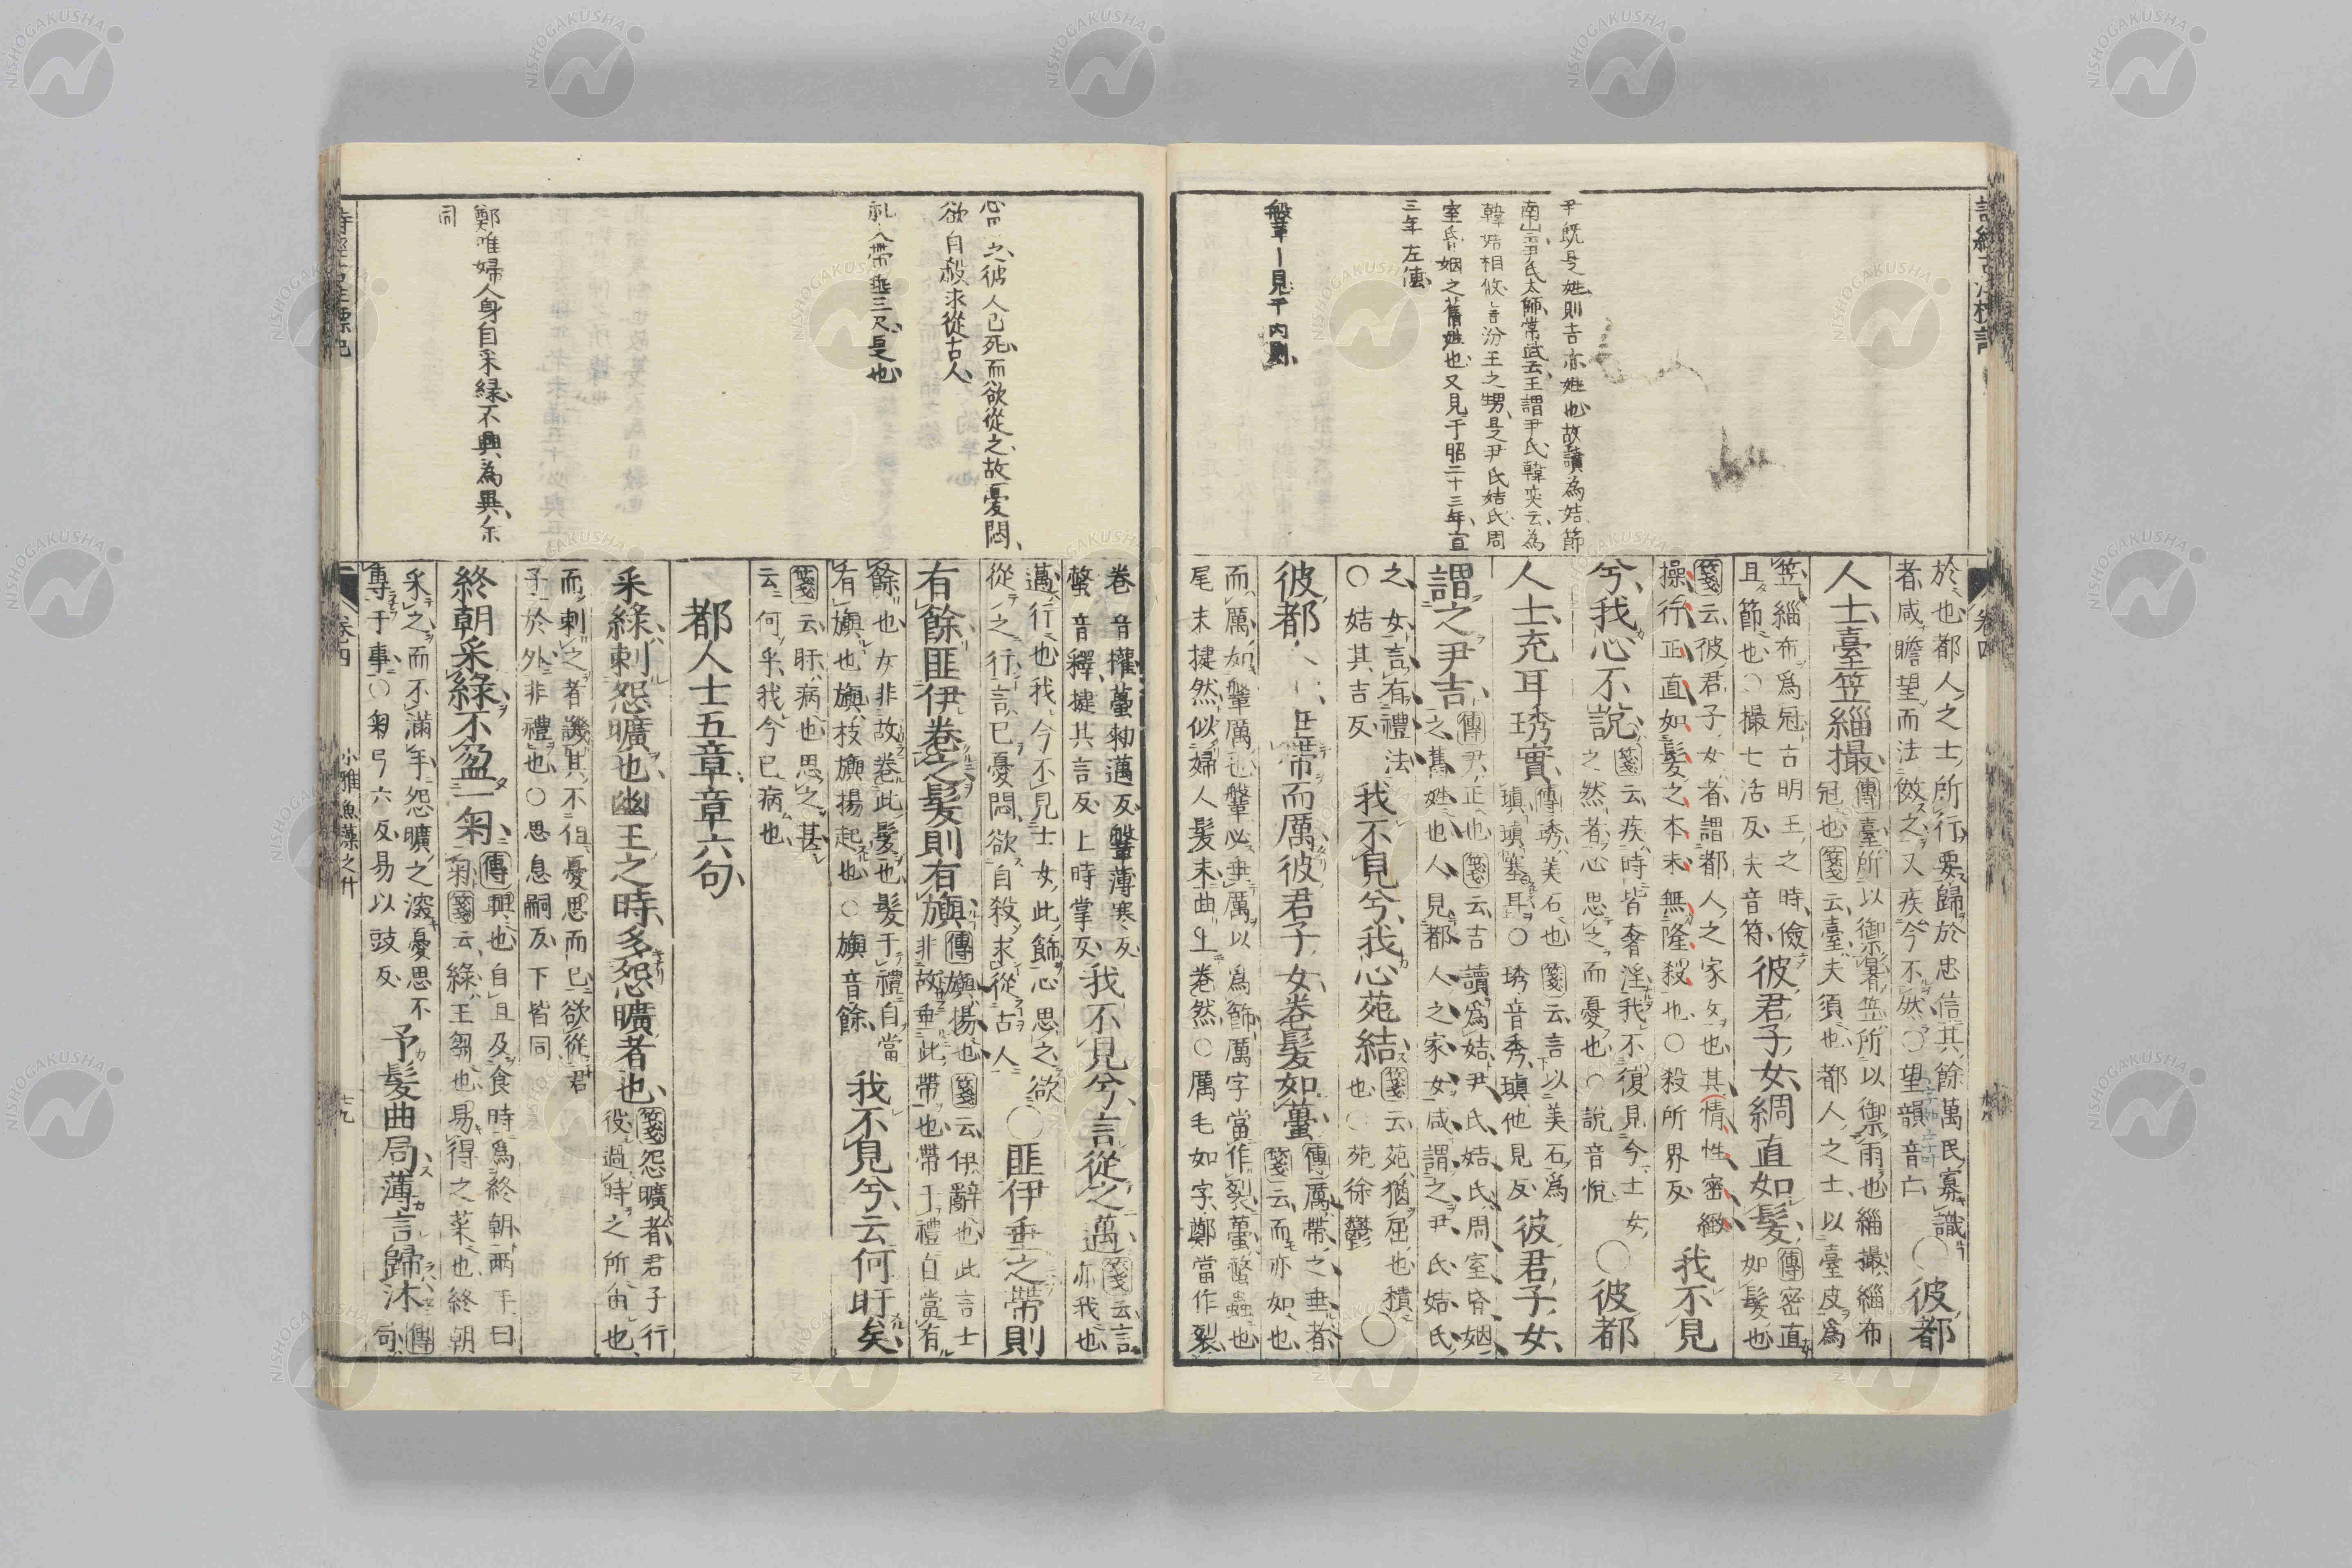 尹既是姓則吉亦姓也故讀為姞節
南山云尹氏太師常武云王謂尹氏韓奕云為
韓姞相攸言汾王之甥是尹氏姞氏周
室昏姻之舊姓也又見于昭二十三年宣
三年左傳
鞶―見于內則
於也都人之士所行要歸於忠信其餘萬民寡識
者咸瞻望而法傚之又疾今不然○望韻音亡
○彼都
人士臺笠緇撮
傳臺所以御暑笠所以御雨也緇撮緇布
冠也箋云臺夫須也都人之士以臺皮為
笠緇布爲冠古明王之時儉
且節也○撮七活反夫音符
彼君子女綢直如髮
傳密直
如髮也
箋云彼君子女者謂都人之家女也其情性密緻
操行正直如髮之本末無隆殺也○殺所界反
我不見
兮我心不說
箋云疾時皆奢淫我不復見今士女
之然者心思之而憂也○說音悅
○彼都
人士充耳琇實
傳琇美石也箋云言以美石為
瑱瑱塞耳○琇音秀瑱他見反
彼君子女
謂之尹吉
傳尹正也箋云吉讀爲姞尹氏姞氏周室昏姻
之舊姓也人見都人之家女咸謂之尹氏姞氏
之女言有禮法
○姞其吉反
我不見兮我心苑結
箋云苑猶屈也積
也○苑徐鬱
○
彼都
帶而厲彼君子女卷髮如蠆
傳厲帶之垂者
箋云而亦如也
而厲如鞶厲也鞶必垂厲以爲飾厲字當作裂蠆螫蟲也
尾末揵然似婦人髮末曲上卷然○厲毛如字鄭當作裂
心思之彼人已死而欲從之故憂悶
欲自殺求從古人
帶垂三尺是也
鄭唯婦人身自采綠不興為異余
同
卷音權蠆勑邁反鞶薄寒反
螫音釋揵其言反上時掌反
我不見兮言從之邁
箋云言
亦我也
邁行也我今不見士女此飾心思之欲
從之行言已憂悶欲自殺求從古人
○匪伊垂之帶則
有餘匪伊卷之髮則有旟
傳旟揚也箋云伊辭也此言士
非故垂此帶也帶于禮自當有
餘也女非故卷此髮也髮于禮自當
有旟也旟枝旟揚起也○旟音餘
我不見兮云何盱矣
箋云盱病也思之甚
云何乎我今已病也
都人士五章章六句
采綠刺怨曠也幽王之時多怨曠者也
箋怨曠者君子行
役過時之所由也
而刺之者譏其不但憂思而已欲從君
子於外非禮也○思息嗣反下皆同
終朝采綠不盈一匊
傳興也自旦及食時爲終朝兩手曰
匊箋云綠王芻也易得之菜也終朝
采之而不滿手怨曠之深憂思不
專于事○匊弓六反易以豉反
予髮曲局薄言歸沐
傳
句
卷四
小雅魚藻之什